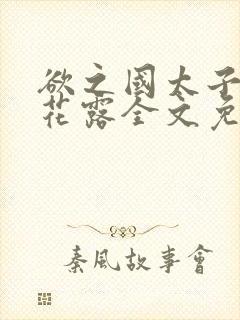 欲之國太子
花露全文免
秦風故事會